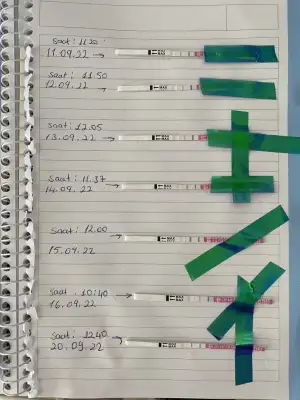 saat: 11.20
11.09.22
saat: 11.50
12.09.22
saat: 12.05
13.09.22
saat: 11.37
14.09.22
saat: 12.00
15.09.22
saat: 10:40
16.09.22
saat: 12.40
20.09.22